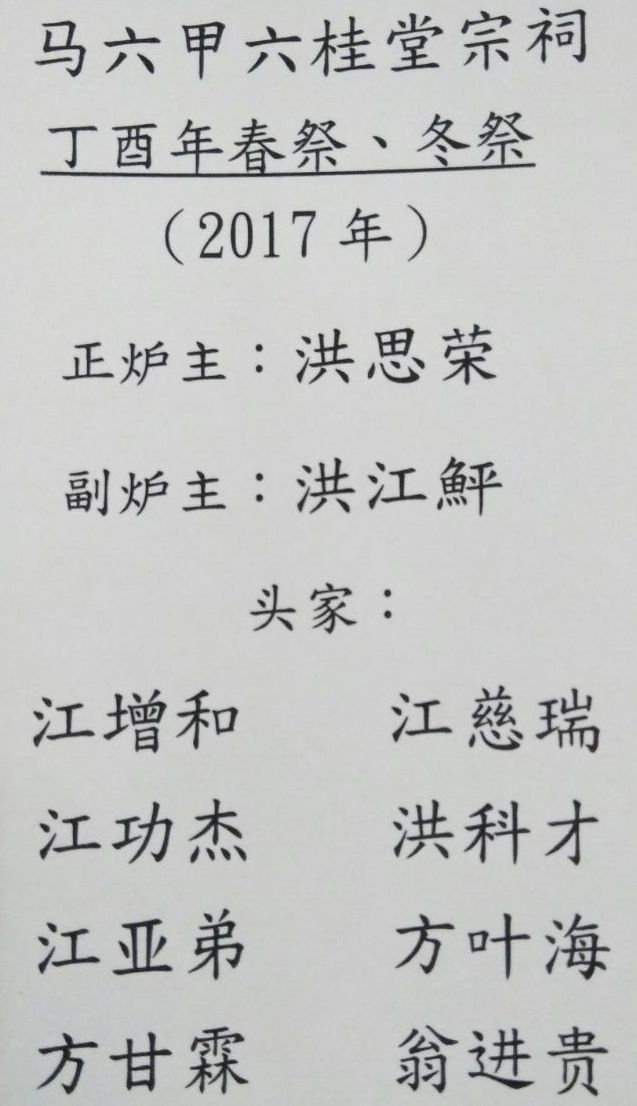 马六甲六桂堂宗祠
丁酉年春祭、冬祭
（2017 年）
正炉主：洪思荣
副炉主：洪江鮃
头家：
江增和 江慈瑞
江功杰 洪科才
江亚弟 方叶海
方甘霖 翁进贵